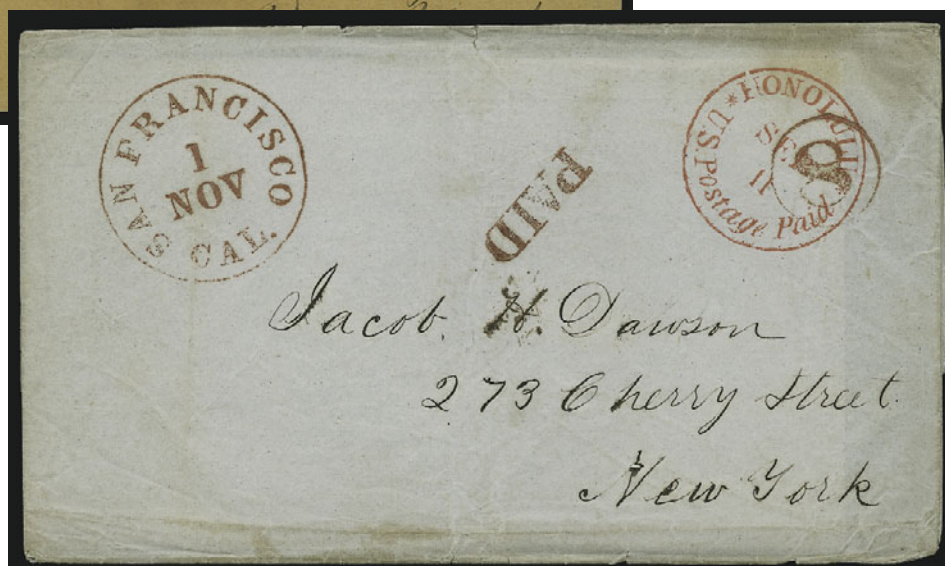 SAN FRANCISCO
1
NOV
CAL.
PAID
HONOLULU
★ U.S. Postage Paid
SEP
11
8
Jacob. H. Dawson
273 Cherry Street.
New York